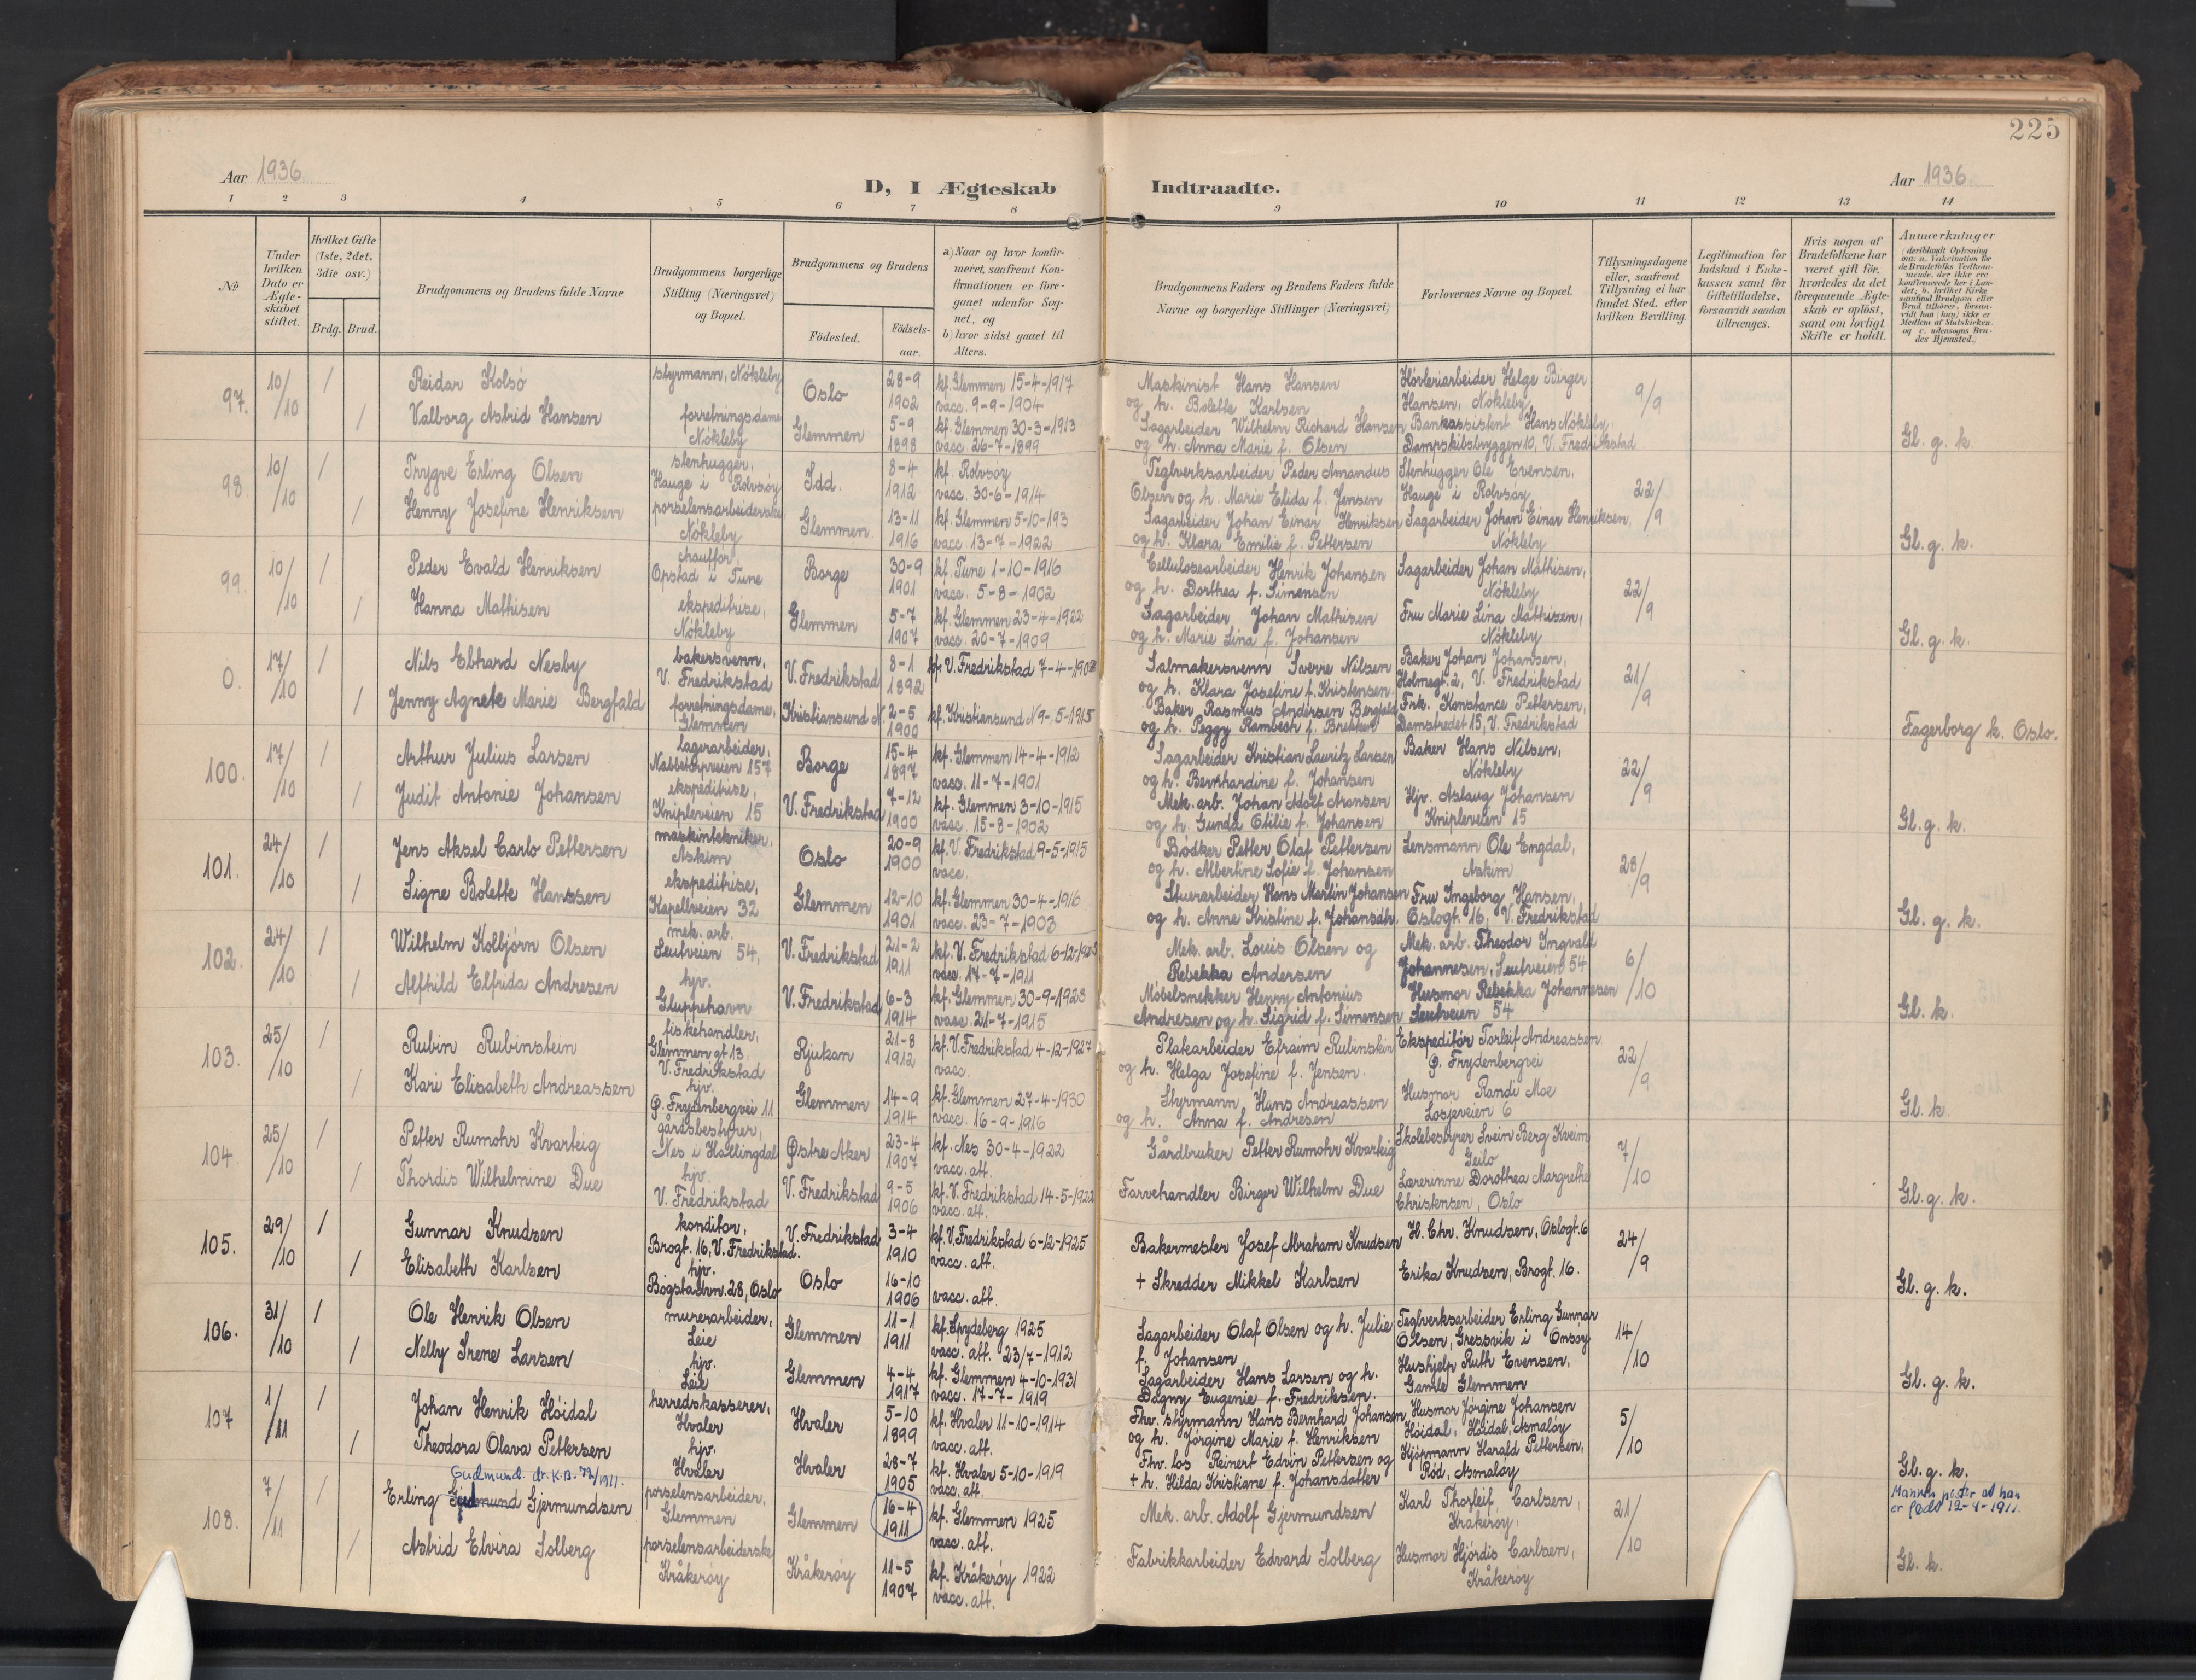 225
Aar 1936.
D, I Ægteskab Indtraadte.
Aar 1936
1 2 3 4 5 6 7 8 9 10 11 12 13 14
№
Under hvilken Dato er Ægteskabet stiftet.
Hvilket Gifte (1ste, 2det, 3die osv.)
Brdg. Brud.
Brudgommens og Brudens fulde Navne
Brudgommens borgerlige Stilling (Næringsvei) og Bopæl.
Brudgommens og Brudens
Födested.
Födsels-aar.
a) Naar og hvor konfirmeret, saafremt Konfirmationen er foregaaet udenfor Sognet, og
b) hvor sidst gaaet til Alters.
Brudgommens Faders og Brudens Faders fulde Navne og borgerlige Stillinger (Næringsvei)
Forlovernes Navne og Bopæl.
Tillysningsdagene eller, saafremt Tillysning ei har fundet Sted, efter hvilken Bevilling.
Legitimation for Indskud i Enkekassen samt for Giftetilladelse, forsaavidt saadan tiltrænges.
Hvis nogen af Brudefolkene har været gift för, hvorledes da det foregaaende Ægteskab er oplöst, samt om lovligt Skifte er holdt.
Anmærkninger
97. 10/10 / Reidar Kolsö styrmann, Nökleby Oslo 28-9 1902 kf. Glemmen 15-4-1917 vacc. 9-9-1904 Maskinist Hans Hansen og h. Bolette Karlsen Høvleriarbeider Helge Birger Hansen, Nökleby 9/9
/ Valborg Astrid Hansen forretningsdame Nökleby Glemmen 5-9 1898 kf. Glemmen 30-3-1913 vacc 26-7-1899 Sagarbeider Wilhelm Richard Hansen og h. Anna Marie f. Olsen Bankassistent Hans Nökleby, Dampskibsbryggen 10, V. Fredrikstad Gl. g. k.
98. 10/10 / Trygve Erling Olsen stenhugger, Hauge i Rolvsøy Idd. 8-4 1912 kf. Rolvsøy vacc. 30-6-1914 Teglverksarbeider Peder Amandus Olsen og h. Marie Elida f. Jensen Stenhugger Ole Evensen, Hauge i Rolvsøy 22/9
/ Henny Josefine Henriksen porselensarbeiderske, Nökleby Glemmen 13-11 1916 kf. Glemmen 5-10-193 vacc 13-7-1922 Sagarbeider Johan Einar Henriksen og h. Klara Emilie f. Pettersen Sagarbeider Johan Einar Henriksen, Nökleby Gl. g. k.
99. 10/10 / Peder Evald Henriksen chauffør, Opstad i Tune Borge 30-9 1901 kf. Tune 1-10-1916 vacc. 5-8-1902 Cellulosearbeider Henrik Johansen og h. Dorthea f. Simensen Sagarbeider Johan Mathisen, Nökleby 22/9
/ Hanna Mathisen ekspeditrise, Nökleby Glemmen 5-7 1907 kf. Glemmen 23-4-1922 vacc 20-7-1909 Sagarbeider Johan Mathisen og h. Marie Lina f. Johansen Fru Marie Lina Mathisen, Nökleby Gl. g. k.
0. 17/10 / Nils Ebhard Nesby bakersvenn, V. Fredrikstad V. Fredrikstad 8-1 1892 kf. V. Fredrikstad 7-4- Salmakersvenn Sverre Nilsen og h. Klara Josefine f. Kristensen. Baker Johan Johansen, Holmegt. 2, V. Fredrikstad 21/9
/ Jenny Agnete Marie Bergfald forretningsdame, Glemmen Kristiansund N. 2-5 1900 kf. Kristiansund N 9-5-1915 Baker Rasmus Andersen Bergfald og h. Peggy Rambech f. Brekken Frk. Konstance Pettersen, Damstredet 15, V. Fredrikstad Fagerborg k. Oslo.
100. 17/10 / Arthur Julius Larsen lagerarbeider, Nabbetorpveien 157 Borge 15-4 1897 kf. Glemmen 14-4-1912 vacc. 11-7-1901 Sagarbeider Kristian Lauritz Larsen og h. Bernhardine f. Johansen Baker Hans Nilsen, Nökleby 22/9
/ Judit Antonie Johansen ekspeditrise, Knipleveien 15 V. Fredrikstad 7-12 1900 kf. Glemmen 3-10-1915 vacc. 15-8-1902 Mek. arb. Johan Adolf Aronsen og h. Gunda Otilie f. Johansen Hjv. Aslaug Johansen Knipleveien 15 Gl. g. k.
101. 24/10 / Jens Aksel Carlo Pettersen maskintekniker, Askim Oslo 20-9 1900 kf. V. Fredrikstad 9-5-1915 vacc. Bødker Petter Olaf Pettersen og h. Albertine Sofie f. Johansen Lensmann Ole Engdal, Askim 28/9
/ Signe Bolette Hanssen ekspeditrise, Kapellveien 32 Glemmen 12-10 1901 kf. Glemmen 30-4-1916 vacc. 23-7-1903 Stuerarbeider Hans Martin Johansen og h. Anne Kristine f. Johansdtr. Fru Ingeborg Hansen, Oslogt. 16, V. Fredrikstad Gl. g. k.
102. 24/10 / Wilhelm Kolbjörn Olsen mek. arb. Seutveien 54, V. Fredrikstad 21-2 1911 kf. V. Fredrikstad 6-12- vacc. 14-7-1911 Mek. arb. Louis Olsen og Rebekka Andersen Mek. arb. Theodor Ingvald Johannesen, Seutveien 54 6/10
/ Alfhild Elfrida Andresen hjv. Gluppehavn V. Fredrikstad 6-3 1914 kf. Glemmen 30-9-1928 vacc 21-7-1915 Møbelsnekker Henry Antonius Andresen og h. Sigrid f. Simensen Husmor Rebekka Johannesen Seutveien 54 Gl. k.
103. 25/10 / Rubin Rubinstein fiskehandler, Glemmen gt 13, V. Fredrikstad Rjukan 21-8 1912 kf. V. Fredrikstad 4-12-1927 vacc. Platearbeider Efraim Rubinstein og h. Helga Josefine f. Jensen. Ekspeditør Torleif Andreassen Ø. Frydenbergvei 22/9
/ Kari Elisabeth Andreassen hjv. Ø. Frydenbergvei 11 Glemmen 14-9 1914 kf. Glemmen 27-4-1930 vacc. 16-9-1916 Styrmann Hans Andreassen og h. Anna f. Andresen Husmor Randi Moe Losjeveien 6 Gl. k.
104. 25/10 / Petter Rumohr Kvarteig gårdsbestyrer, Nes i Hallingdal Østre Aker 23-4 1907 kf. Nes 30-4-1922 vacc. att. Gårdbruker Petter Rumohr Kvarteig Skolebestyrer Svein Berg Kveim Geilo 7/10
/ Thordis Wilhelmine Due hjv. V. Fredrikstad V. Fredrikstad 9-5 1906 kf. V. Fredrikstad 14-5-1922 vacc. att. Farvehandler Birger Wilhelm Due Lærerinne Dorothea Margrethe Christensen, Oslo Gl. g. k.
105. 29/10 / Gunnar Knudsen konditor, Brogt. 16, V. Fredrikstad. V. Fredrikstad 3-4 1910 kf. V. Fredrikstad 6-12-1925 vacc. att. Bakermester Josef Abraham Knudsen H. Chr. Knudsen, Oslogt. 6 24/9
/ Elisabeth Karlsen hjv. Bogstadvn. 28, Oslo Oslo 16-10 1906 vacc. att. + Skredder Mikkel Karlsen Erika Knudsen, Brogt. 16. Gl. g. k.
106. 31/10 / Ole Henrik Olsen murerarbeider, Leie Glemmen 11-1 1911 kf. Spydeberg 1925 vacc. att. 23/7-1912 Sagarbeider Olaf Olsen og h. Julie f. Johansen Teglverksarbeider Erling Gunnar Olsen, Gressvik i Onsøy 14/10
/ Nelly Irene Larsen hjv. Leie Glemmen 4-4 1917 kf. Glemmen 4-10-1931 vacc. 17-7-1919 Sagarbeider Hans Larsen og h. Dagny Eugenie f. Fredriksen. Hushjelp Ruth Evensen, Gamle Glemmen Gl. g. k.
107 1/11 / Johan Henrik Høidal herredskasserer, Hvaler Hvaler 5-10 1899 kf. Hvaler 11-10-1914 vacc. att. Fhv. styrmann Hans Bernhard Johansen og h. Jørgine Marie f. Henriksen Husmor Jørgine Johansen Høidal, Høidal, Asmaløy 5/10
/ Theodora Olava Pettersen hjv. Hvaler Hvaler 28-7 1905 kf. Hvaler 5-10-1919 vacc. att. Fhv. los Reinert Edvin Pettersen og + h. Hilda Kristiane f. Johansdatter Kjöpmann Harald Pettersen, Rød, Asmaløy Gl. g. k.
Gudmund
108. 7/11 / Erling Gjermundsen porselensarbeider, Glemmen Glemmen 16-4 1911 kf. Glemmen 1925 vacc. att. Mek. arb. Adolf Gjermundsen Karl Thorleif Carlsen, Kråkerøy. 21/10
/ Astrid Elvira Solberg porselensarbeiderske Kråkerøy Kråkerøy 11-5 1907 kf. Kråkerøy 1922 vacc. att. Fabrikkarbeider Edvard Solberg Husmor Hjördis Carlsen, Kråkerøy Gl. k.